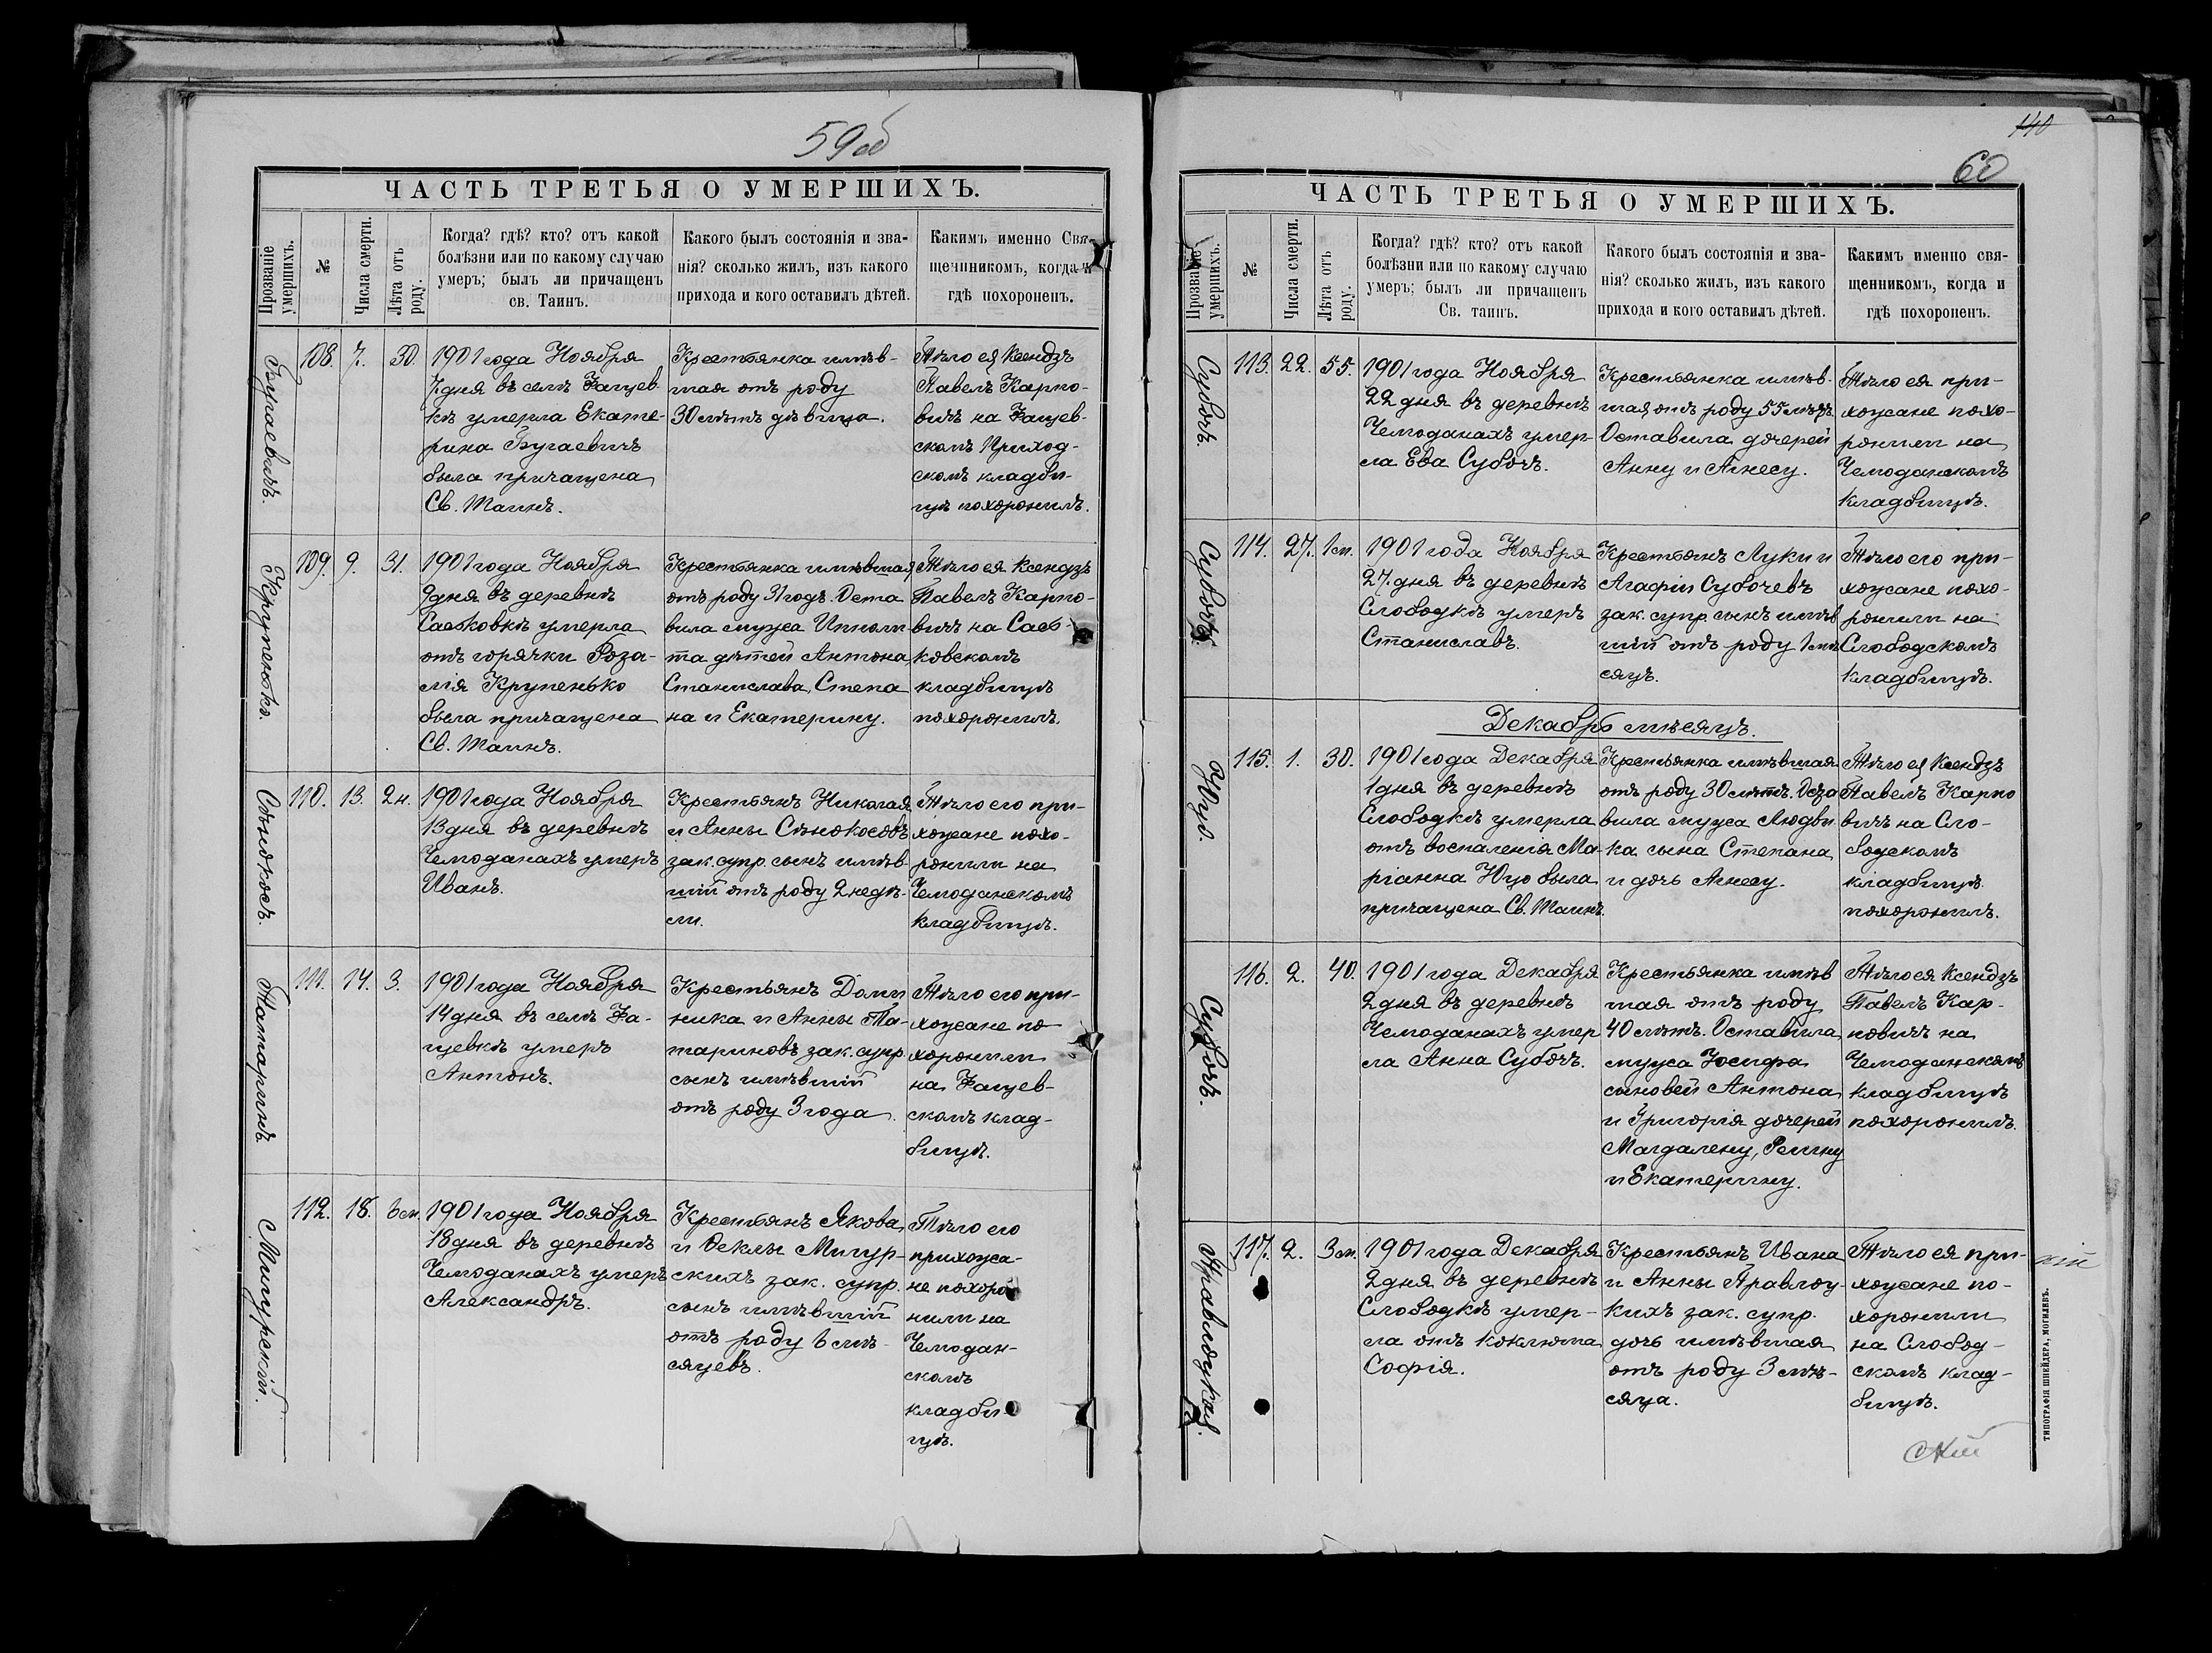 59об
ЧАСТЬ ТРЕТЬЯ О УМЕРШИХЪ.
Прозваніе умершихъ.
№
Числа смерти.
Лѣта отъ роду.
Когда? гдѣ? кто? отъ какой
болѣзни или по какому случаю
умеръ; былъ ли причащенъ
св. Таинъ.
Какого былъ состоянія и зва-
нія? сколько жилъ, изъ какого
прихода и кого оставилъ дѣтей.
Каким­ъ именно Свя-
щенникомъ, когда и
гдѣ похороненъ.
Бугаевичъ.
108.
7.
30.
1901 года Ноября
7 дня въ селѣ Фащев-
кѣ умерла Екате-
рина Бугаевичъ
была причащена
Св. Таинъ.
Крестьянка имѣв-
шая отъ роду
30 лѣтъ дѣвица.
Тѣло ея Ксендзъ
Павелъ Карпо-
вичъ на Фащев-
скомъ Приход-
скомъ кладби-
щѣ похоронилъ.
Крупенько.
109.
9.
31.
1901 года Ноября
9 дня въ деревнѣ
Саськовкѣ умерла
отъ горячки Роза-
лія Крупенько
была причащена
Св. Таинъ.
Крестьянка имѣвшая
отъ роду 31 годъ. Оста
вила мужа Иполи-
та дѣтей Антона,
Станислава, Степа
на и Екатерину.
Тѣло ея Ксендзъ
Павелъ Карпо-
вичъ на Сась-
ковскомъ
кладбищѣ
похоронилъ.
Сѣнокосъ.
110.
13.
2 н.
1901 года Ноября
13 дня въ деревнѣ
Чемоданахъ умеръ
Иванъ.
Крестьянъ Николая
и Анны Сѣнокосовъ
зак. супр. сынъ имѣв-
шій отъ роду 2 недѣ-
ли.
Тѣло его при-
хожане похо-
ронили на
Чемоданскомъ
кладбищѣ.
Татаринъ.
111.
14.
3.
1901 года Ноября
14 дня въ селѣ Фа-
щевкѣ умеръ
Антонъ.
Крестьянъ Доми
ника и Анны Та-
тариновъ зак. супр.
сынъ имѣвшій
отъ роду 3 года.
Тѣло его при-
хожане по-
хоронили
на Фащев-
скомъ клад-
бищѣ.
Мигурскій.
112.
18.
6 м.
1901 года Ноября
18 дня въ деревнѣ
Чемоданахъ умеръ
Александръ.
Крестьянъ Якова
и Феклы Мигур-
скихъ зак. супр.
сынъ имѣвшій
отъ роду 6 мѣ-
сяцевъ.
Тѣло его
прихожа-
не похоро
нили на
Чемодан-
скомъ
кладби-
щѣ.
140
60
ЧАСТЬ ТРЕТЬЯ О УМЕРШИХЪ.
Прозваніе умершихъ.
№
Числа смерти.
Лѣта отъ роду.
Когда? гдѣ? кто? отъ какой
болѣзни или по какому случаю
умеръ; былъ ли причащенъ
Св. таинъ.
Какого былъ состоянія и зва-
нія? сколько жилъ, изъ какого
прихода и кого оставилъ дѣтей.
Какимъ именно свя-
щенникомъ, когда и
гдѣ похороненъ.
Субочъ.
113.
22.
55.
1901 года Ноября
22 дня въ деревнѣ
Чемоданахъ умер-
ла Ева Субочъ.
Крестьянка имѣв-
шая отъ роду 55 лѣтъ.
Оставила дочерей
Анну и Агнесу.
Тѣло ея при-
хожане похо-
ронили на
Чемоданскомъ
кладбищѣ.
Субочъ.
114.
27.
1 м.
1901 года Ноября
27 дня въ деревнѣ
Слободкѣ умеръ
Станиславъ.
Крестьянъ Луки и
Агафіи Субочевъ
зак. супр. сынъ имѣв
шій отъ роду 1 мѣ
сяцъ.
Тѣло его при-
хожане похо-
ронили на
Слободскомъ
кладбищѣ.
Декабрь мѣсяцъ.
Юцо.
115.
1.
30.
1901 года Декабря
1 дня въ деревнѣ
Слободкѣ умерла
отъ воспаленія Ма-
ріанна Юцо была
причащена Св. Таинъ.
Крестьянка имѣвшая
отъ роду 30 лѣтъ. Оста
вила мужа Людви
ка сына Степана
и дочь Агнесу.
Тѣло ея Ксендзъ
Павелъ Карпо
вичъ на Сло-
бодскомъ
кладбищѣ
похоронилъ.
Субочъ.
116.
2.
40.
1901 года Декабря
2 дня въ деревнѣ
Чемоданахъ умер
ла Анна Субочъ.
Крестьянка имѣв
шая отъ роду
40 лѣтъ. Оставила
мужа Іосифа
сыновей Антона
и Григорія дочерей
Магдалену, Регину
и Екатерину.
Тѣло ея Ксендзъ
Павелъ Кар-
повичъ на
Чемоданскомъ
кладбищѣ
похоронилъ.
Правлоцкая.
117.
2.
3 м.
1901 года Декабря
2 дня въ деревнѣ
Слободкѣ умер-
ла отъ коклюша
Софія.
Крестьянъ Ивана
и Анны Правлоц-
кихъ зак. супр.
дочь имѣвшая
отъ роду 3 мѣ-
сяца.
Тѣло ея при-
хожане по-
хоронили
на Слобод-
скомъ клад-
бищѣ.
ТИПОГРАФІЯ ШНЕЙДЕРА, МОГИЛЕВЪ.